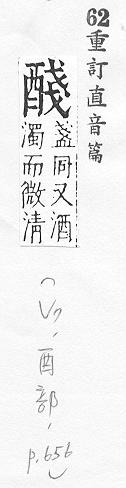 62重訂直音篇
醆
盞同又酒
濁而微清
酉部, p.656)